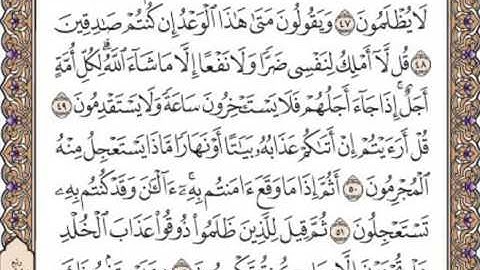 لَا يُظْلَمُونَ ٤٧ وَيَقُولُونَ مَتَىٰ هَٰذَا ٱلْوَعْدُ إِن كُنتُمْ صَٰدِقِينَ
٤٨ قُل لَّآ أَمْلِكُ لِنَفْسِى ضَرًّا وَلَا نَفْعًا إِلَّا مَا شَآءَ ٱللَّهُ لِكُلِّ أُمَّةٍ
أَجَلٌ إِذَا جَآءَ أَجَلُهُمْ فَلَا يَسْتَـْٔخِرُونَ سَاعَةً وَلَا يَسْتَقْدِمُونَ ٤٩
قُلْ أَرَءَيْتُمْ إِنْ أَتَىٰكُمْ عَذَابُهُۥ بَيَٰتًا أَوْ نَهَارًا مَّاذَا يَسْتَعْجِلُ مِنْهُ
ٱلْمُجْرِمُونَ ٥٠ أَثُمَّ إِذَا مَا وَقَعَ ءَامَنتُم بِهِۦٓ ءَآلْـَٰٔنَ وَقَدْ كُنتُم بِهِۦ
تَسْتَعْجِلُونَ ٥١ ثُمَّ قِيلَ لِلَّذِينَ ظَلَمُوا۟ ذُوقُوا۟ عَذَابَ ٱلْخُلْدِ